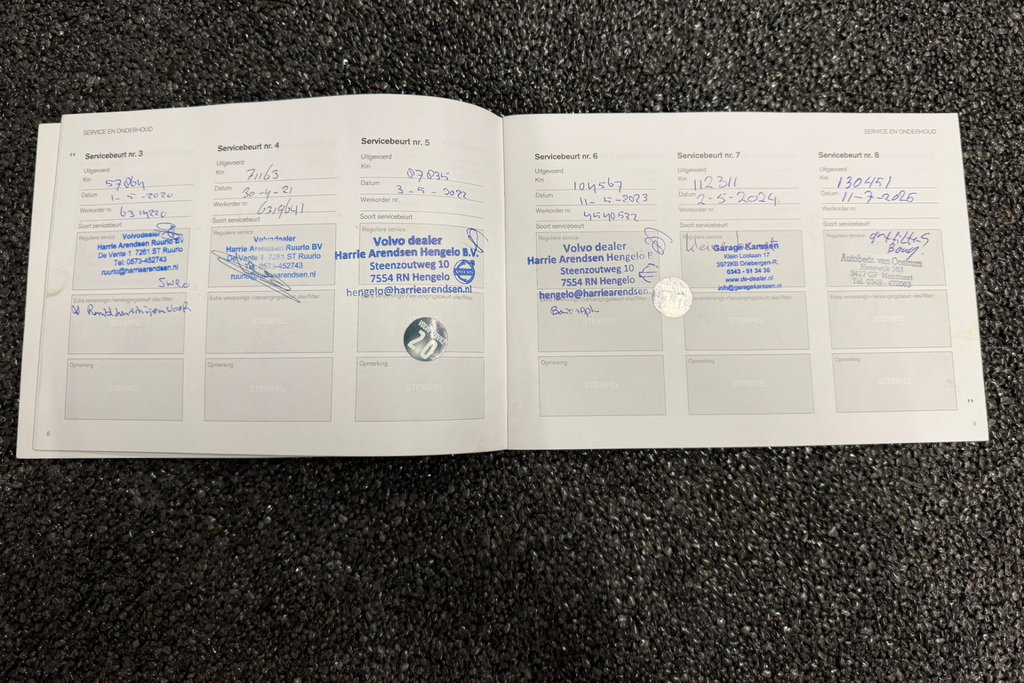 SERVICE EN ONDERHOUD
Servicebeurt nr. 3
Uitgevoerd
Km
57864
Datum 1-5-2020
Werkorder nr. 6314220
Soort servicebeurt
Reguliere service
Volvodealer
Harrie Arendsen Ruurlo BV
De Vente 1 7261 ST Ruurlo
Tel: 0573-452743
ruurlo@harriearendsen.nl
Extra verversings-/vervangingsbeurt olie/filter:
STEMPEL
Opmerking
STEMPEL
8
Servicebeurt nr. 4
Uitgevoerd
Km
71163
Datum 30-4-21
Werkorder nr. 6319641
Soort servicebeurt
Reguliere service
Volvodealer
Harrie Arendsen Ruurlo BV
De Vente 1 7261 ST Ruurlo
Tel: 0573-452743
ruurlo@harriearendsen.nl
Extra verversings-/vervangingsbeurt olie/filter:
STEMPEL
Opmerking
STEMPEL
Servicebeurt nr. 5
Uitgevoerd
Km
Datum 3-5-2022
Werkorder nr.
Soort servicebeurt
Volvo dealer
Harrie Arendsen Hengelo B.V.
Steenzoutweg 10
7554 RN Hengelo
hengelo@harriearendsen.nl
Extra verversings-/vervangingsbeurt olie/filter:
20
Opmerking
STEMPEL
SERVICE EN ONDERHOUD
Servicebeurt nr. 6
Uitgevoerd
Km
104567
Datum 11-5-2023
Werkorder nr. 4540532
Soort servicebeurt
Volvo dealer
Harrie Arendsen Hengelo
Steenzoutweg 10
7554 RN Hengelo
hengelo@harriearendsen
Extra verversings-/vervangingsbeurt olie/filter:
STEMPEL
Opmerking
STEMPEL
Servicebeurt nr. 7
Uitgevoerd
Km
112311
Datum 2-5-2024
Werkorder nr.
Soort servicebeurt
Reguliere service
Garage Karssen
Klein Loolaan 17
3972KB Driebergen-R.
0343 - 51 34 36
www.de-dealer.nl
info@garagekarssen.nl
Extra verversings-/vervangingsbeurt olie/filter:
STEMPEL
Opmerking
STEMPEL
Servicebeurt nr. 8
Uitgevoerd
Km
130451
Datum 11-7-2025
Werkorder nr.
Soort servicebeurt
Reguliere service
Autobedr. van Oostrum
Heeswijk 163
3417 GP Montfoort
Tel. 0348 - 472063
Extra verversings-/vervangingsbeurt olie/filter:
STEMPEL
Opmerking
STEMPEL
9